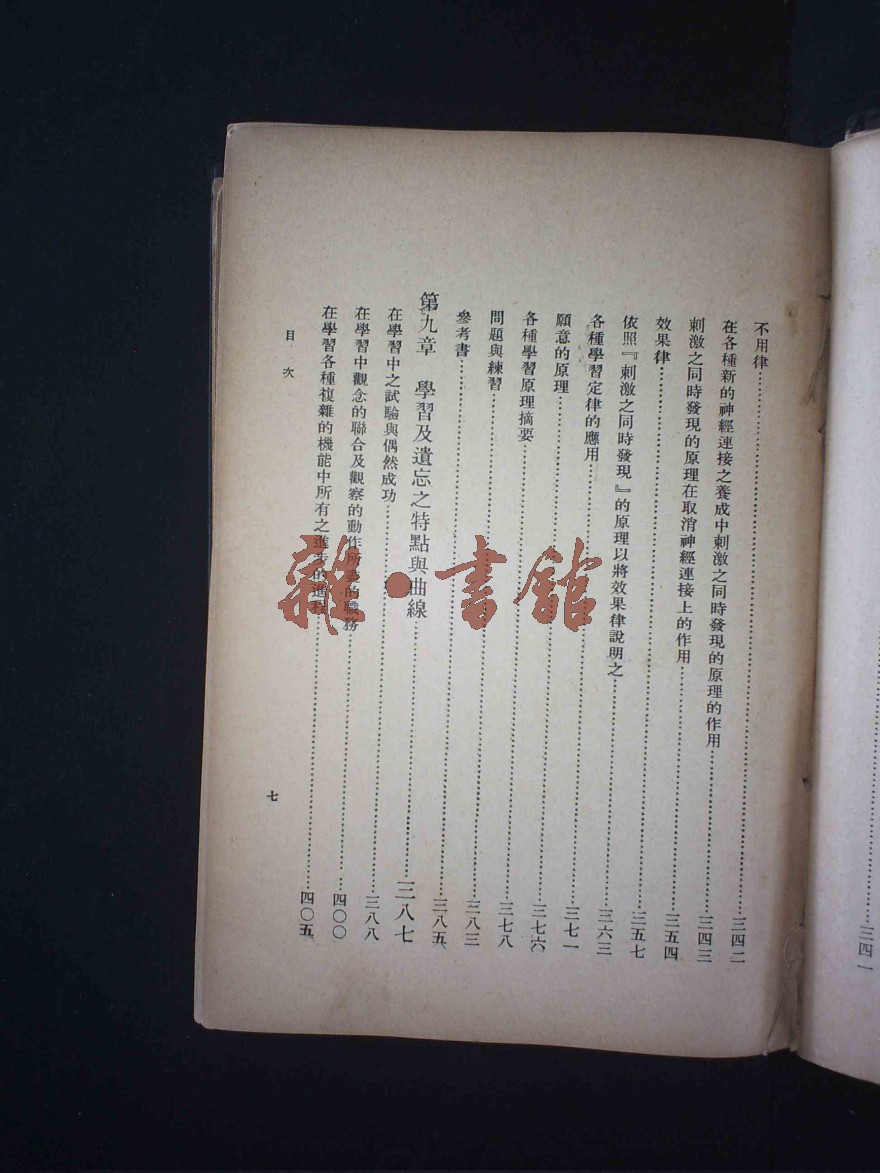 三四一
不用律……三四二
在各種新的神經連接之養成中刺激之同時發現的原理的作用……三四三
刺激之同時發現的原理在取消神經連接上的作用……三五四
效果律……三五七
依照『刺激之同時發現』的原理以將效果律說明之……三六三
各種學習定律的應用……三七一
願意的原理……三七六
各種學習原理摘要……三七八
問題與練習……三八三
參考書……三八五
第九章 學習及遺忘之特點與曲線……三八七
在學習中之試驗與偶然成功……三八八
在學習中觀念的聯合及觀察的動作所的職務……四〇〇
在學習各種複雜的機能中所有之進步的進程……四〇五
目次
七
雜·書館